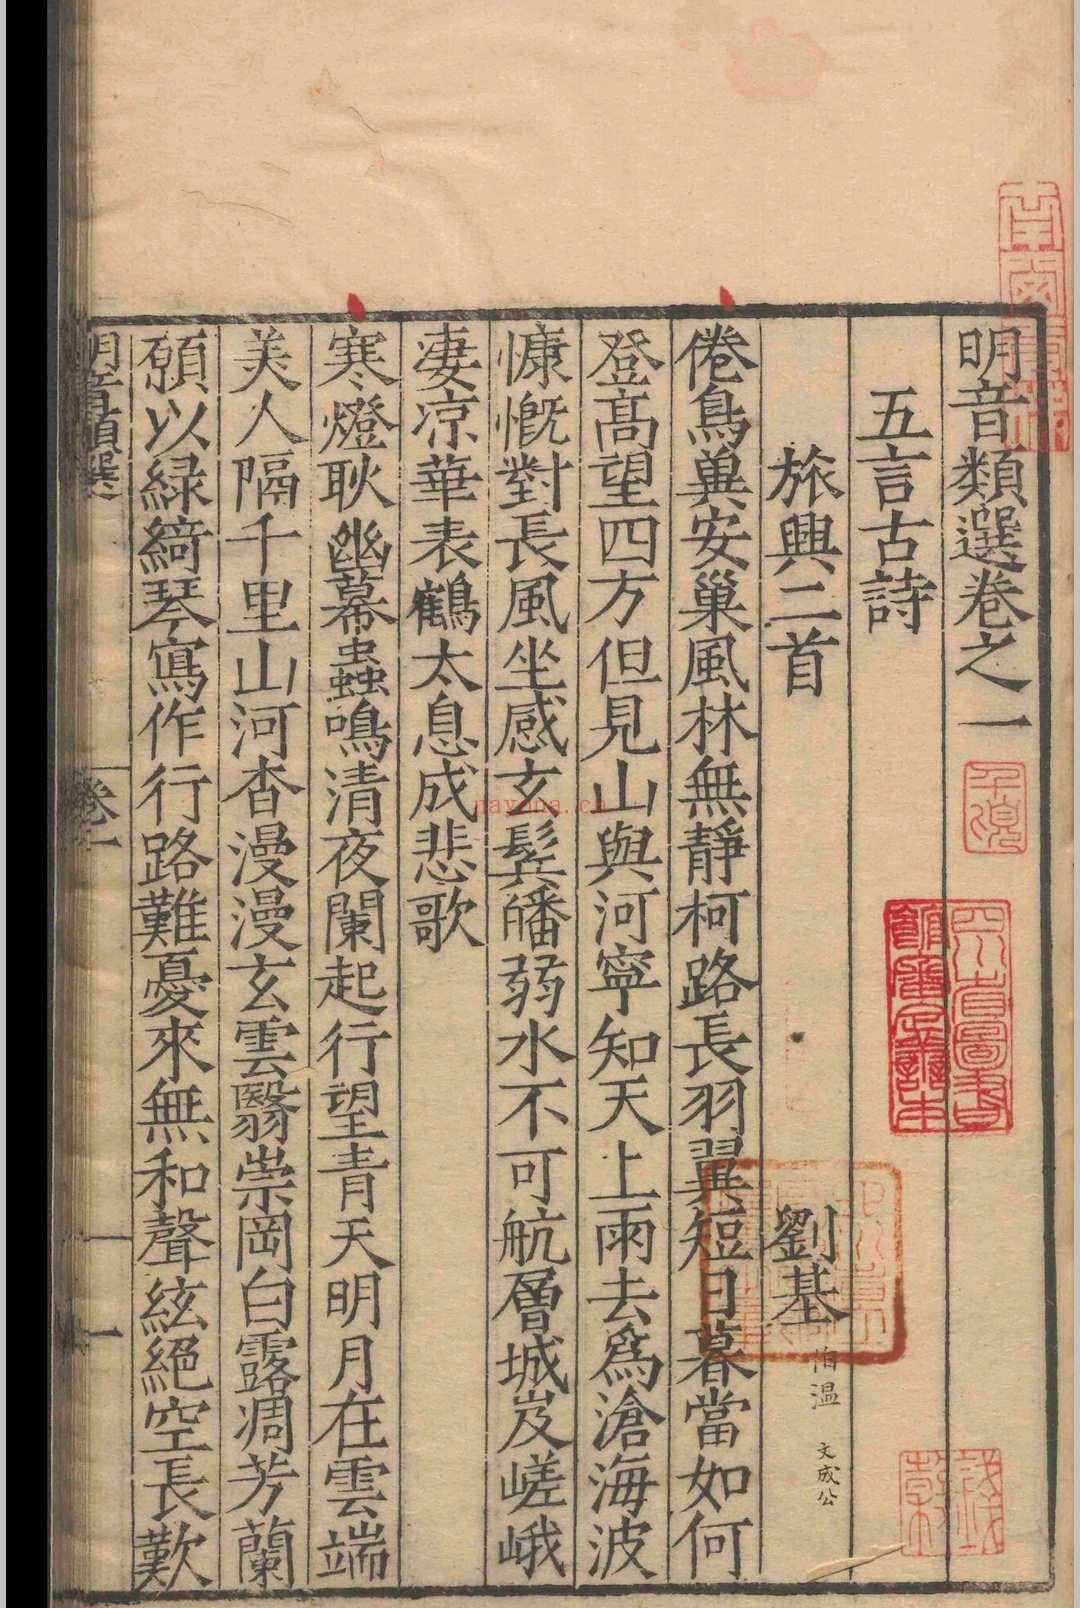 明音類選卷之一
五言古詩
旅興二首
劉基
伯温 文成公
倦鳥冀安巢風林無靜柯路長羽翼短日暮當如何
登高望四方但見山與河寧知天上雨去爲滄海波
慷慨對長風坐感玄鬓皤弱水不可航層城岌嵯峨
凄凉華表鶴太息成悲歌
寒燈耿幽幕蟲鳴清夜闌起行望青天明月在雲端
美人隔千里山河杳漫漫玄雲翳崇岡白露凋芳蘭
願以緑綺琴寫作行路難憂來無和聲絃絕空長歎
明音類選
卷一
一
nayona.cn